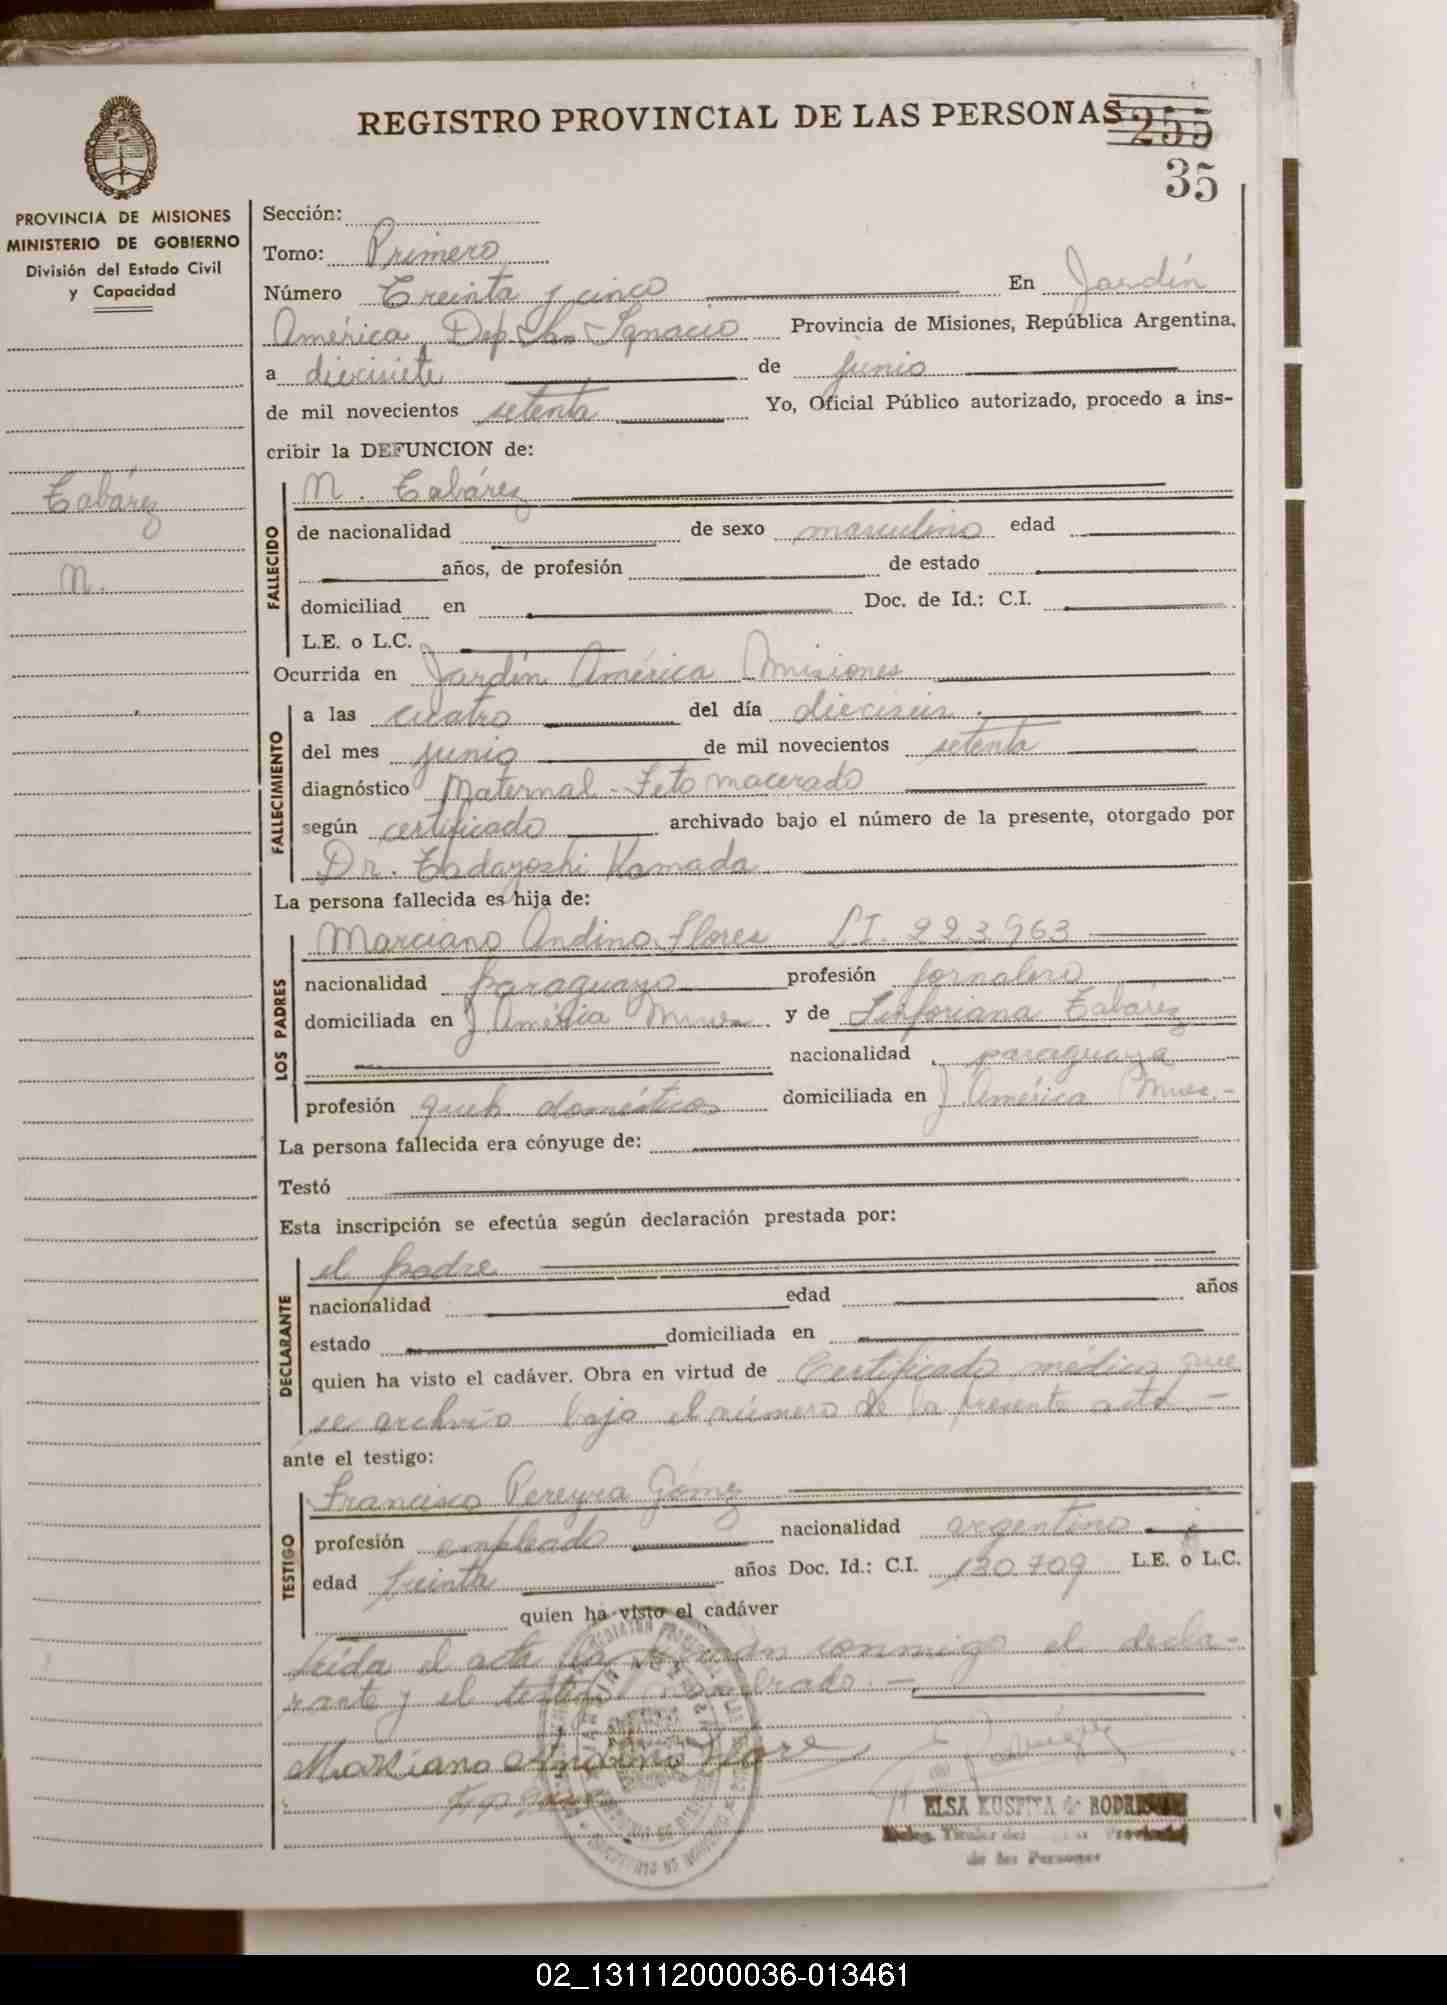 REGISTRO PROVINCIAL DE LAS PERSONAS 255
35
PROVINCIA DE MISIONES
MINISTERIO DE GOBIERNO
División del Estado Civil
y Capacidad
Tabárez
N.
Sección:
Tomo: Primero
Número Treinta y cinco En Jardín
América Dep. San Ignacio Provincia de Misiones, República Argentina,
a diecisiete de junio
de mil novecientos setenta Yo, Oficial Público autorizado, procedo a ins-
cribir la DEFUNCION de:
FALLECIDO
N. Tabárez
de nacionalidad de sexo masculino edad
años, de profesión de estado
domiciliad en Doc. de Id.: C.I.
L.E. o L.C.
Ocurrida en Jardín América Misiones
FALLECIMIENTO
a las cuatro del día dieciseis
del mes junio de mil novecientos setenta
diagnóstico Maternal - Feto macerado
según certificado archivado bajo el número de la presente, otorgado por
Dr. Tadayoshi Kamada
La persona fallecida es hija de:
LOS PADRES
Marciano Andino Flores C.I. 223963
nacionalidad paraguayo profesión jornalero
domiciliada en J. América Mnes y de Sinforiana Tabárez
nacionalidad paraguaya
profesión queh. domésticos domiciliada en J. América Mnes.-
La persona fallecida era cónyuge de:
Testó
Esta inscripción se efectúa según declaración prestada por:
DECLARANTE
el padre
nacionalidad edad años
estado domiciliada en
quien ha visto el cadáver. Obra en virtud de Certificado médico que
se archiva bajo el número de la presente acta.-
ante el testigo:
TESTIGO
Francisco Pereyra Gómez
profesión empleado nacionalidad argentino
edad treinta años Doc. Id.: C.I. 130.709 L.E. o L.C.
quien ha visto el cadáver
Leida el acta la firman conmigo el decla-
rante y el testigo nombrado.-
Marciano Andino Flore
ELSA KUSPITA de RODRIGUEZ
Deleg. Titular del Provincial
de las Personas
02_131112000036-013461